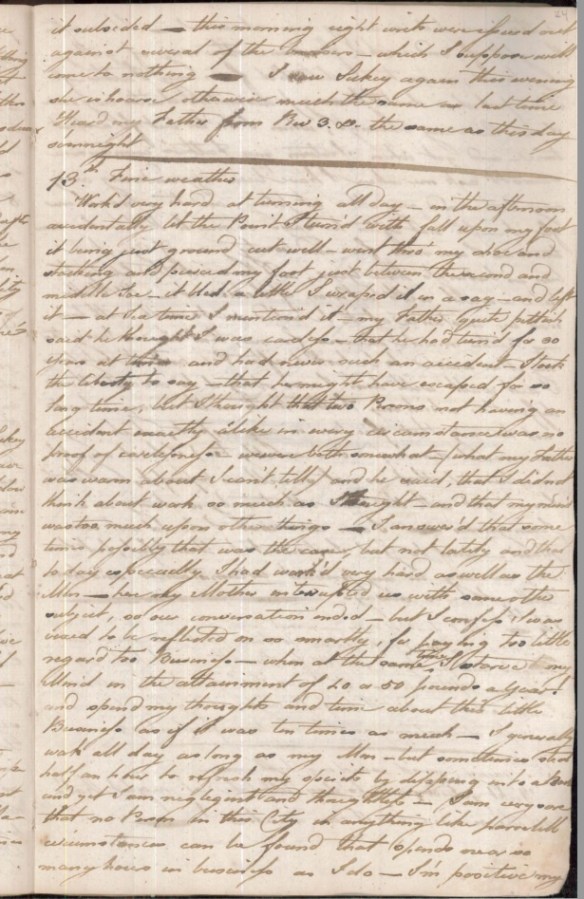 it subsided — this morning eight writs were issued out
against several of the — which I suppose will
come to nothing — I saw Sukey again this evening
she is hoarse otherwise much the same as last time
Heard my Father from Rev 3. 8. the same as this day
sevennight
13.th Fine weather
Work'd very hard at turning all day — in the afternoon
accidentally let the Point I turn'd with fall upon my foot
it being just ground cut well went thro' my shoe and
stocking and pierced my foot just between the second and
middle toe — it bled a little I wraped it in a rag — and left
it — at tea time I mention'd it — my Father quite pettish
said he thought I was careless — that he had turn'd for 30
years at times and had never such an accident — I took
the liberty to say — that he might have escaped for so
long time, but I thought that two Persons not having an
accident exactly alike in every circumstance was no
proof of carelesness we were both somewhat (what my Father
was warm about I can't tell) and he said, that I did not
think about work so much as I ought — and that my mind
was too much upon other things — I answer'd that some
times possibly that was the case, but not lately and that
to day especially I had work'd very hard as well as the
Men — here my Mother interupted us with some other
subject, so our conversation ended — but I confess I was
vexed to be reflected on so smartly, for paying too little
regard too Business — when at the same time I starve my
Mind in the attainment of 40 or 50 pounds a Year!
and spend my thoughts and time about this little
Business as if it was ten times as much — I generally
work all day as long as my Men — but sometimes steal
half an hour to refresh my spirits by dipping into a Book
and yet I am negligent and thoughtless — I am very sure
that no Person in this City in anything like parrellell
circumstances can be found that spends near so
many hours in business as I do — I'm positive my